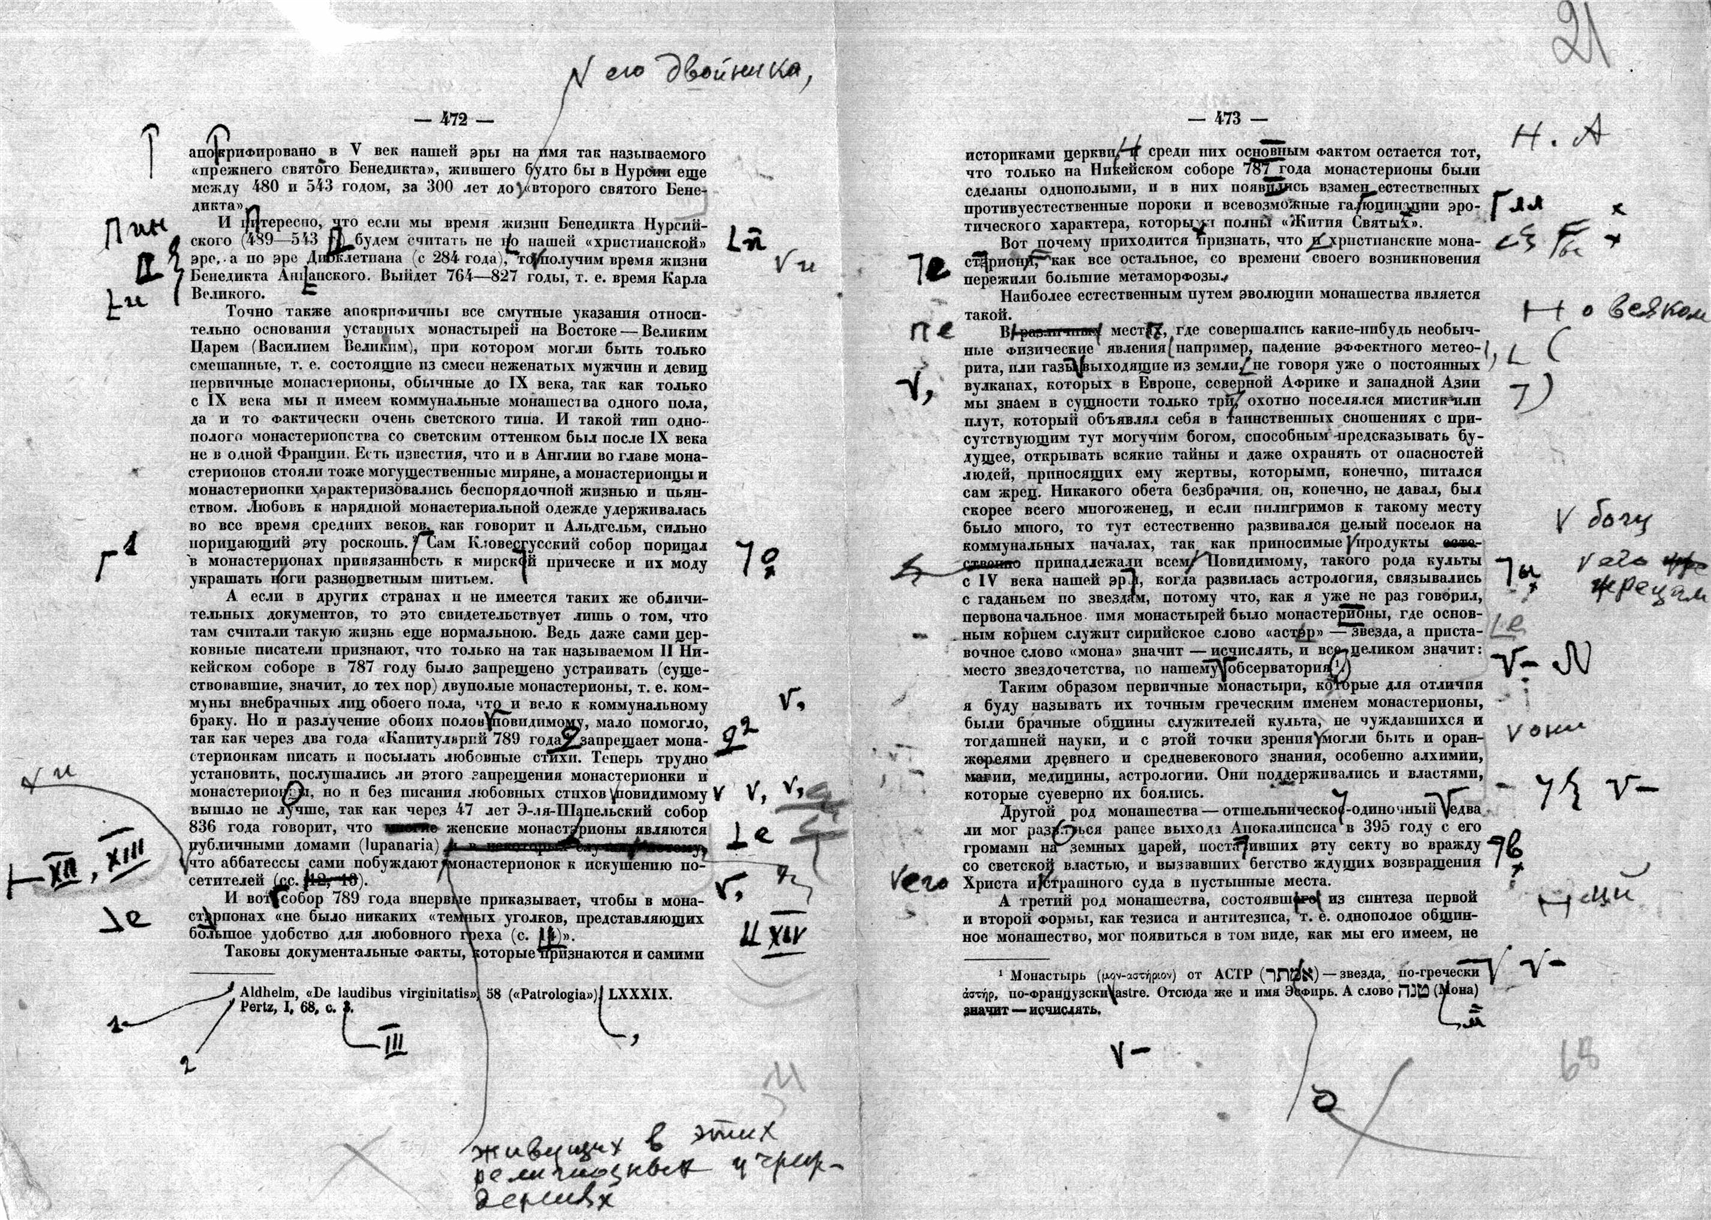 N его двойника,
— 472 —
апокрифировано в V век нашей эры на имя так называемого
«прежнего святого Бенедикта», жившего будто бы в Нурсии еще
между 480 и 543 годом, за 300 лет до «второго святого Бене-
дикта».
И интересно, что если мы время жизни Бенедикта Нурсий-
ского (489—543 будем считать не по нашей «христианской»
эре, а по эре Диоклетиана (с 284 года), то получим время жизни
Бенедикта Анианского. Выйдет 764—827 годы, т. е. время Карла
Великого.
Точно также апокрифичны все смутные указания относи-
тельно основания уставных монастырей на Востоке — Великим
Царем (Василием Великим), при котором могли быть только
смешанные, т. е. состоящие из смеси неженатых мужчин и девиц
первичные монастерионы, обычные до IX века, так как только
с IX века мы и имеем коммунальные монашества одного пола,
да и то фактически очень светского типа. И такой тип одно-
полого монастерионства со светским оттенком был после IX века
не в одной Франции. Есть известия, что и в Англии во главе мона-
стерионов стояли тоже могущественные миряне, а монастерионцы и
монастерионки характеризовались беспорядочной жизнью и пьян-
ством. Любовь к нарядной монастериальной одежде удерживалась
во все время средних веков, как говорит и Альдгельм, сильно
порицающий эту роскошь. Сам Кловесгусский собор порицал
в монастерионах привязанность к мирской прическе и их моду
украшать ноги разноцветным шитьем.
А если в других странах и не имеется таких же обличи-
тельных документов, то это свидетельствует лишь о том, что
там считали такую жизнь еще нормальною. Ведь даже сами цер-
ковные писатели признают, что только на так называемом II Ни-
кейском соборе в 787 году было запрещено устраивать (суще-
ствовавшие, значит, до тех пор) двуполые монастерионы, т. е. ком-
муны внебрачных лиц обоего пола, что и вело к коммунальному
браку. Но и разлучение обоих полов повидимому, мало помогло,
так как через два года «Капитулярий 789 года» запрещает мона-
стерионкам писать и посылать любовные стихи. Теперь трудно
установить, послушались ли этого запрещения монастерионки и
монастерионцы, но и без писания любовных стихов повидимому
вышло не лучше, так как через 47 лет Э-ля-Шапельский собор
836 года говорит, что многие женские монастерионы являются
публичными домами (lupanaria) и в некоторых случаях
что аббатессы сами побуждают монастерионок к искушению по-
сетителей (сс. 12, 13).
И вот собор 789 года впервые приказывает, чтобы в мона-
стерионах «не было никаких «темных уголков, представляющих
большое удобство для любовного греха (с. 14)».
Таковы документальные факты, которые признаются и самими
Aldhelm, «De laudibus virginitatis», 58 («Patrologia») LXXXIX.
Pertz, I, 68, с. 3.
1
2
III
XII, XIII
XIV
живущих в этих
религиозных учреж-
дениях
21
— 473 —
историками церкви, и среди них основным фактом остается тот,
что только на Никейском соборе 787 года монастерионы были
сделаны однополыми, и в них появились взамен естественных
противуестественные пороки и всевозможные галюцинации эро-
тического характера, которых полны «Жития Святых».
Вот почему приходится признать, что и христианские мона-
стерионы, как все остальное, со времени своего возникновения
пережили большие метаморфозы.
Наиболее естественным путем эволюции монашества является
такой.
В различных местах, где совершались какие-нибудь необыч-
ные физические явления например, падение эффектного метео-
рита, или газы выходящие из земли, не говоря уже о постоянных
вулканах, которых в Европе, северной Африке и западной Азии
мы знаем в сущности только три, охотно поселялся мистик или
плут, который объявлял себя в таинственных сношениях с при-
сутствующим тут могучим богом, способным предсказывать бу-
дущее, открывать всякие тайны и даже охранять от опасностей
людей, приносящих ему жертвы, которыми, конечно, питался
сам жрец. Никакого обета безбрачия, он, конечно, не давал, был
скорее всего многоженец, и если пилигримов к такому месту
было много, то тут естественно развивался целый поселок на
коммунальных началах, так как приносимые продукты есте-
ственно принадлежали всем. Повидимому, такого рода культы
с IV века нашей эры, когда развилась астрология, связывались
с гаданьем по звездам, потому что, как я уже не раз говорил,
первоначальное имя монастырей было монастерионы, где основ-
ным корнем служит сирийское слово «астэр» — звезда, а приста-
вочное слово «мона» значит — исчислять, и все целиком значит:
место звездочетства, по нашему обсерватория ¹.
Таким образом первичные монастыри, которые для отличия
я буду называть их точным греческим именем монастерионы,
были брачные общины служителей культа, не чуждавшихся и
тогдашней науки, и с этой точки зрения могли быть и оран-
жереями древнего и средневекового знания, особенно алхимии,
магии, медицины, астрологии. Они поддерживались и властями,
которые суеверно их боялись.
Другой род монашества — отшельническое-одиночный едва
ли мог развиться ранее выхода Апокалипсиса в 395 году с его
громами на земных царей, поставивших эту секту во вражду
со светской властью, и вызвавших бегство ждущих возвращения
Христа и страшного суда в пустынные места.
А третий род монашества, состоявшего из синтеза первой
и второй формы, как тезиса и антитезиса, т. е. однополое общин-
ное монашество, мог появиться в том виде, как мы его имеем, не
¹ Монастырь (μον-αστήριον) от АСТР (אסתר) — звезда, по-гречески
ἀστήρ, по-французски astre. Отсюда же и имя Эсфирь. А слово מנה (Мона)
значит — исчислять.
о всяком
богу
его
жрецам
они
его
щий
68